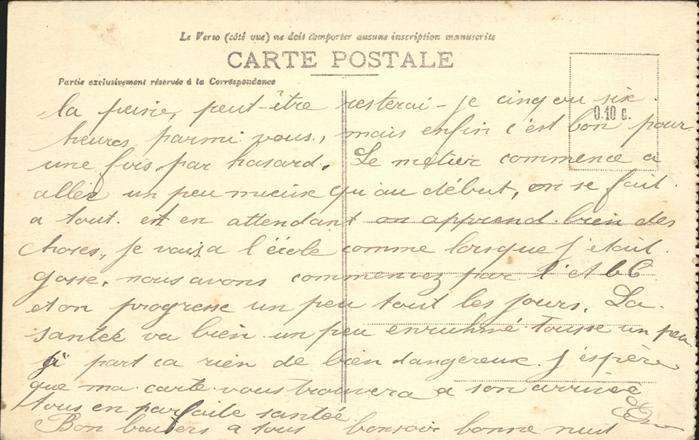 Le Verso (côté vue) ne doit comporter aucune inscription manuscrite
CARTE POSTALE
Partie exclusivement réservée à la Correspondance
0.10 c.
la peine, peut-être resterai-je cinq ou six
heures parmi vous, mais enfin c'est bon pour
une fois par hasard. Le métier commence a
aller un peu mieux qu'au début, on se fait
a tout. et en attendant on apprend bien des
choses, je vais a l'école comme lorsque j'etait
gosse, nous avons commencez par l'
et on progresse un peu tout les jours. La
santée va bien un peu enrhumé tousse un peu
a part ca rien de bien dangereux. J'espère
que ma carte vous trouvera a son arrivée
tous en parfaite santée
Bon baisers a tous bonsoir bonne nuit